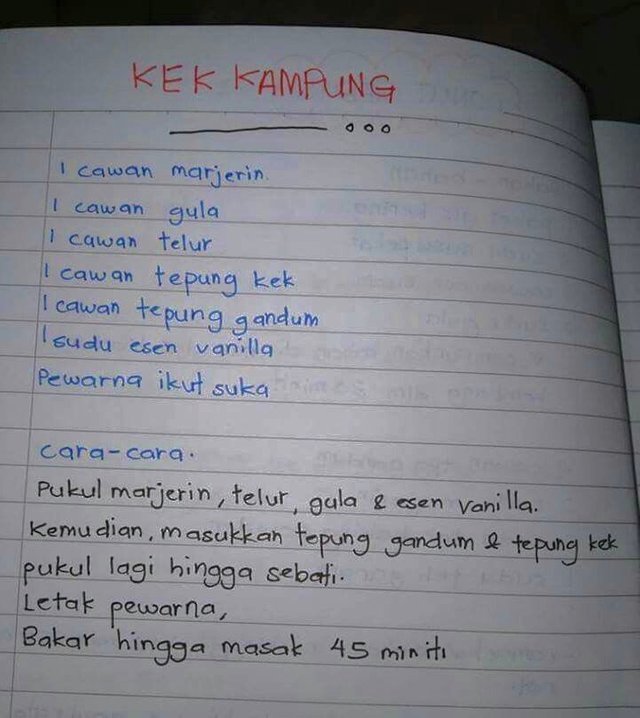 KEK KAMPUNG
1 cawan marjerin.
1 cawan gula
1 cawan telur
1 cawan tepung kek
1 cawan tepung gandum
1 sudu esen vanilla
Pewarna ikut suka
cara-cara.
Pukul marjerin, telur, gula & esen vanilla.
Kemudian, masukkan tepung gandum & tepung kek
pukul lagi hingga sebati.
Letak pewarna,
Bakar hingga masak 45 miniti